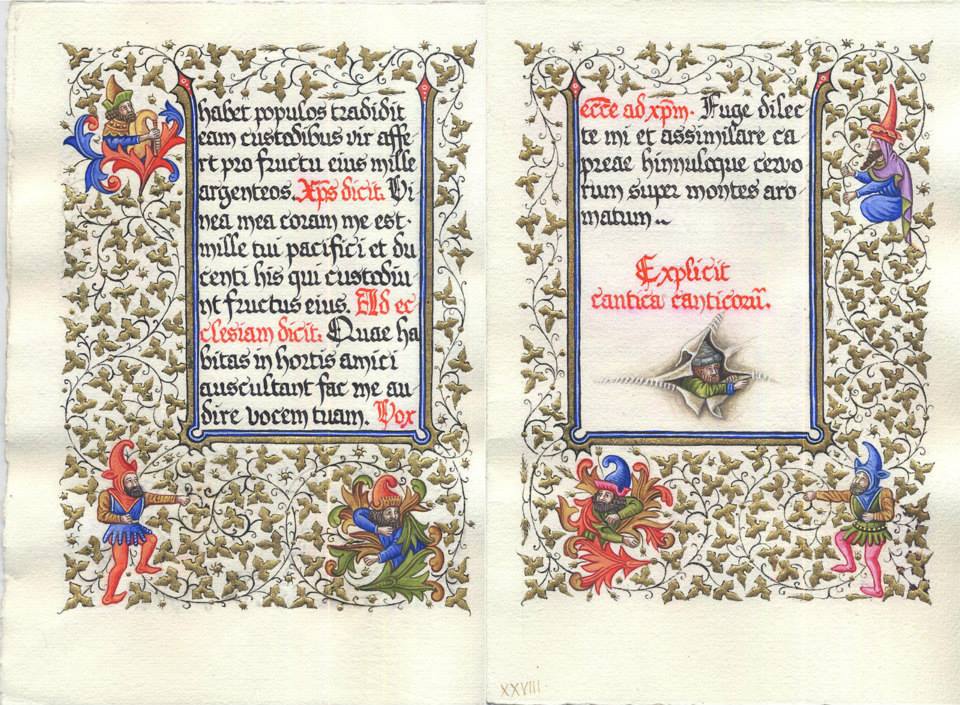 habet populos tradidit
eam custodibus vir affe
rt pro fructu eius mille
argenteos. Xp̄s dicit. Vi
nea mea coram me est·
mille tui pacifici et du
centi his qui custodiu
nt fructus eius. Ad ec
clesiam dicit. Quae ha
bitas in hortis amici
auscultant fac me au
dire vocem tuam. Vox
ecc̄e ad xp̄m. Fuge dilec
te mi et assimilare ca
preae hinnuloque cervo
rum super montes aro
matum..
Explicit
cantica canticorū.
XXVIII